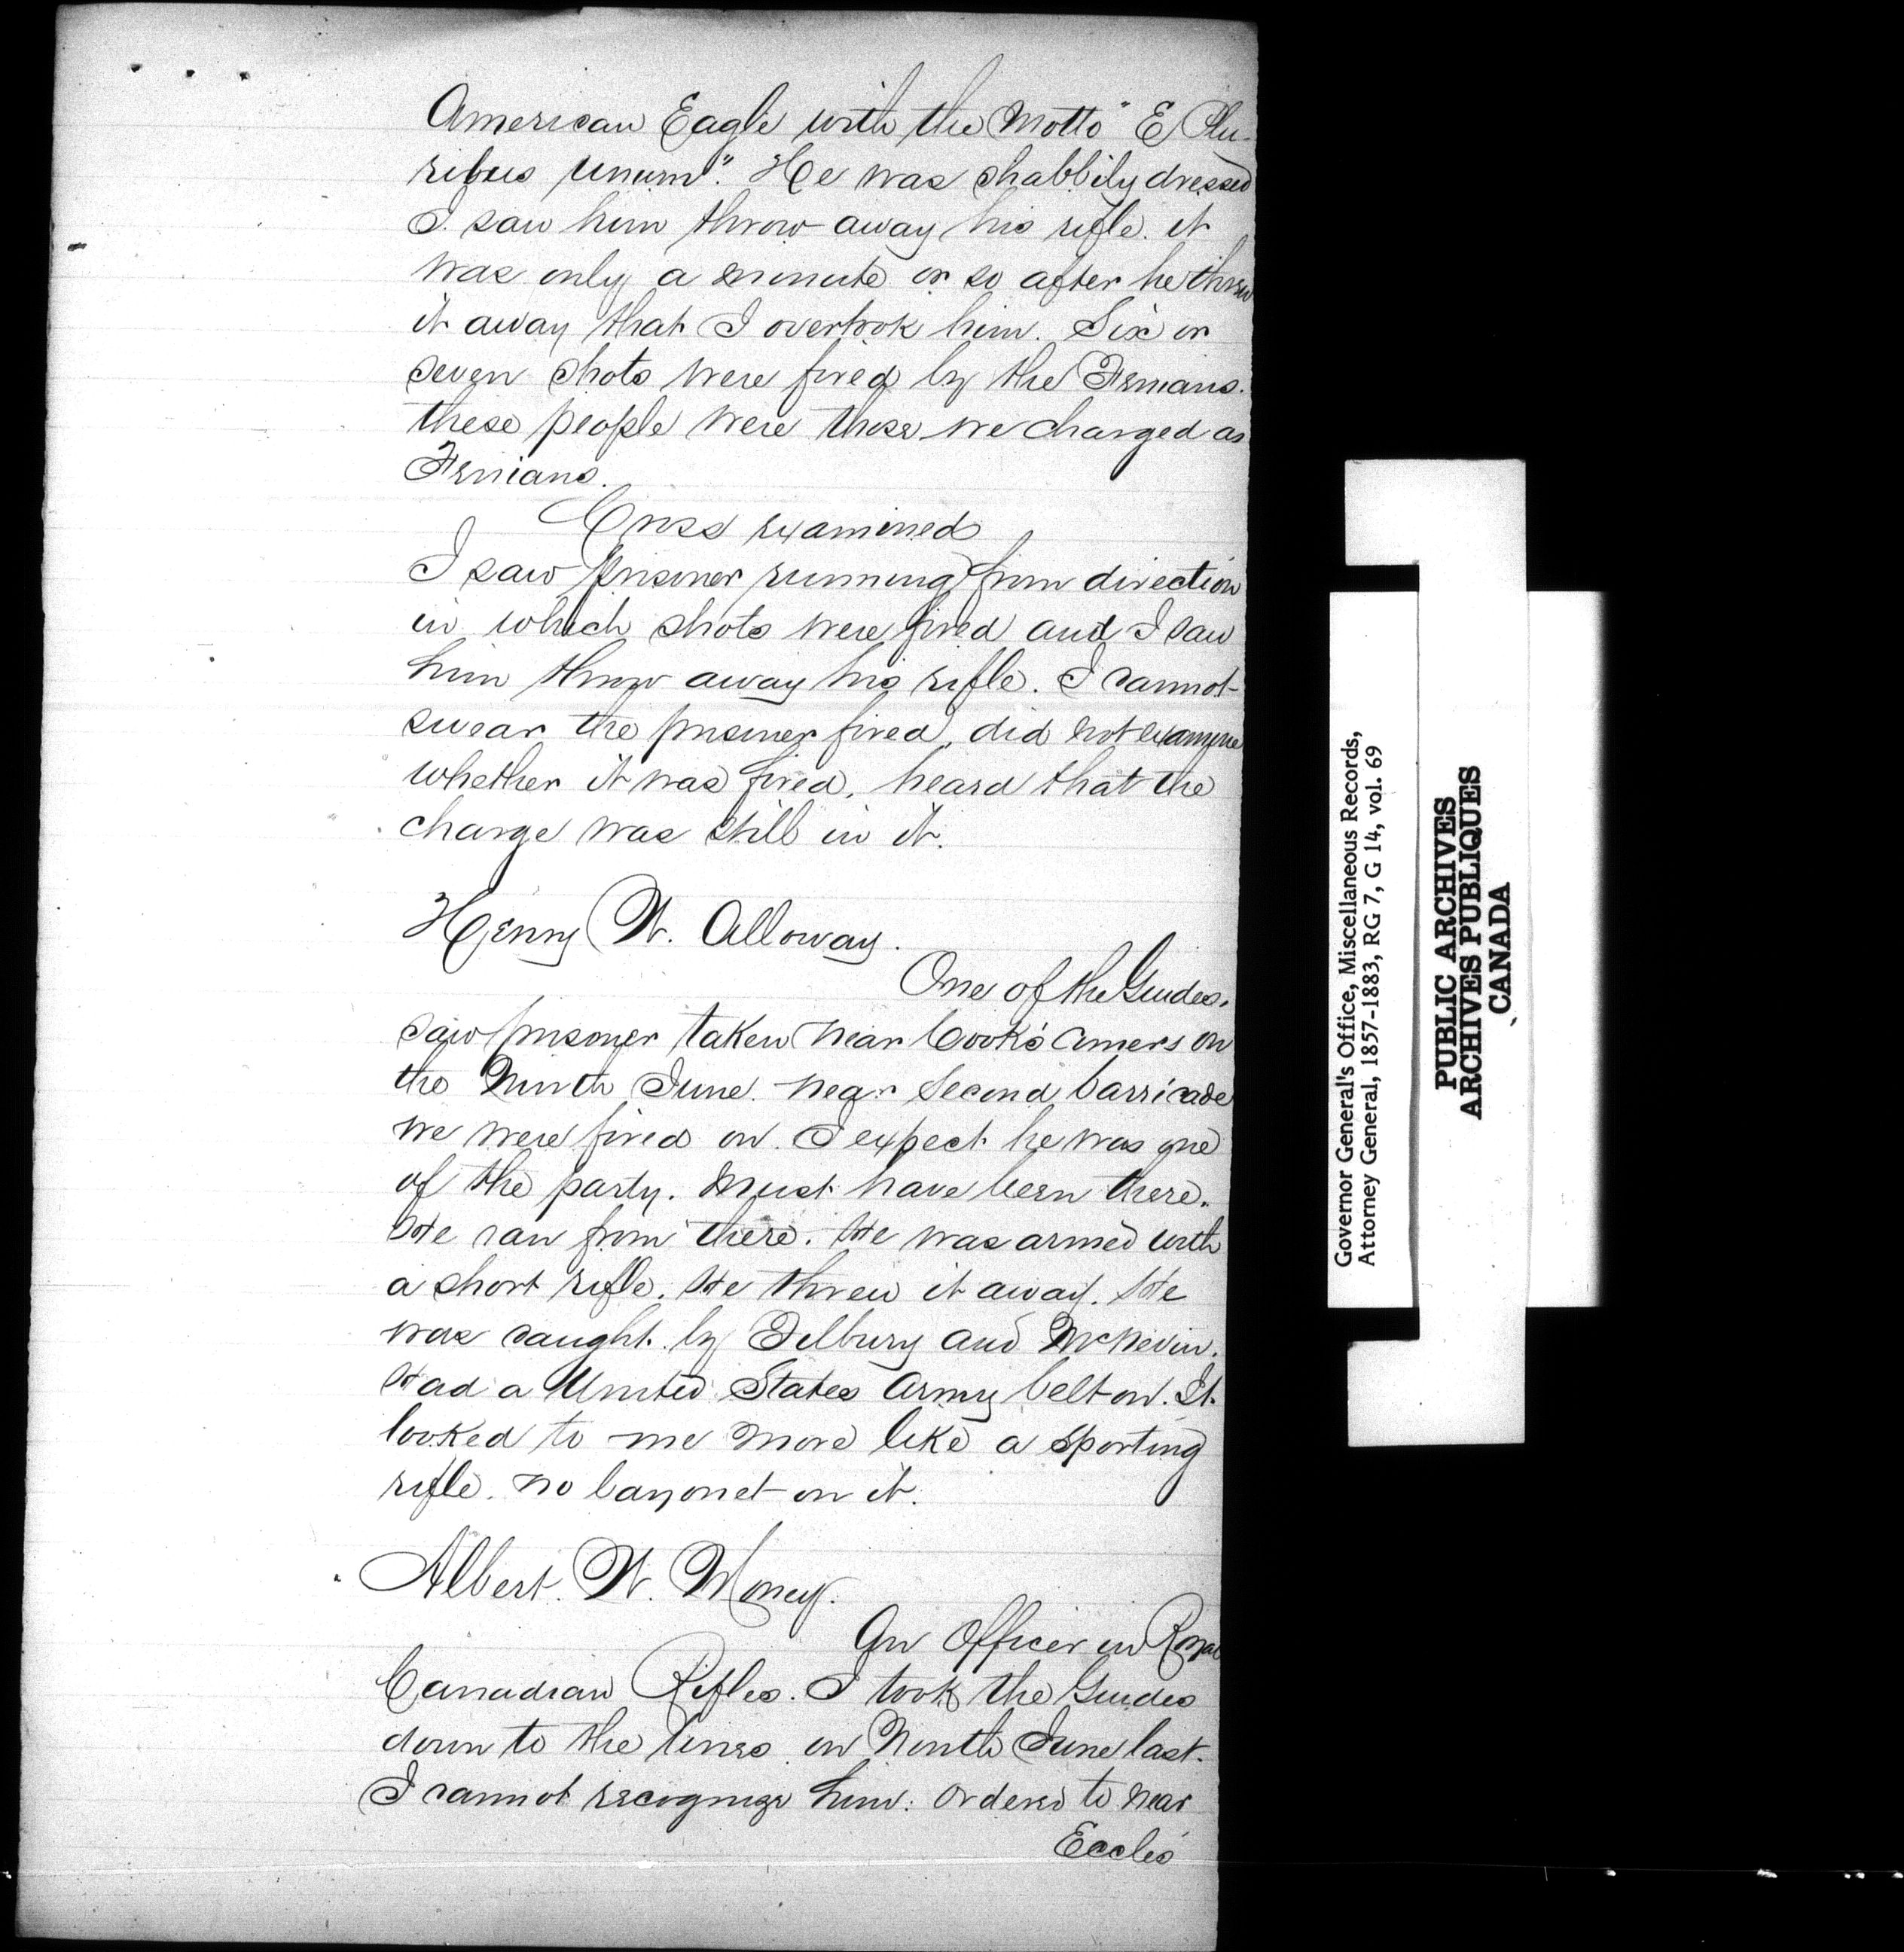 American Eagle with the Motto "E Plu-
ribus Unum". He was shabbily dressed
I saw him throw away his rifle. it
was only a minute or so after he threw
it away that I overtook him. Six or
seven shots were fired by the Fenians.
these people were those we charged as
Fenians.
Cross examined
I saw prisoner running from direction
in which shots were fired and I saw
him throw away his rifle. I cannot
swear the prisoner fired, did not examine
whether it was fired, heard that the
charge was still in it.
Henry W. Alloway.
One of the Guides.
saw prisoner taken near Cook's Corners on
the Ninth June. near second barricade
we were fired on. I expect he was one
of the party. Must have been there.
He ran from there. He was armed with
a short rifle. He threw it away. He
was caught by Tilbury and McNevin.
Had a United States Army belt on. It
looked to me more like a sporting
rifle. no bayonet on it.
Albert. W. Money.
An Officer in Royal
Canadian Rifles. I took the Guides
down to the lines on Ninth June last.
I cannot recognize him. ordered to near
Eccles'
Governor General's Office, Miscellaneous Records,
Attorney General, 1857-1883, RG 7, G 14, vol. 69
PUBLIC ARCHIVES
ARCHIVES PUBLIQUES
CANADA